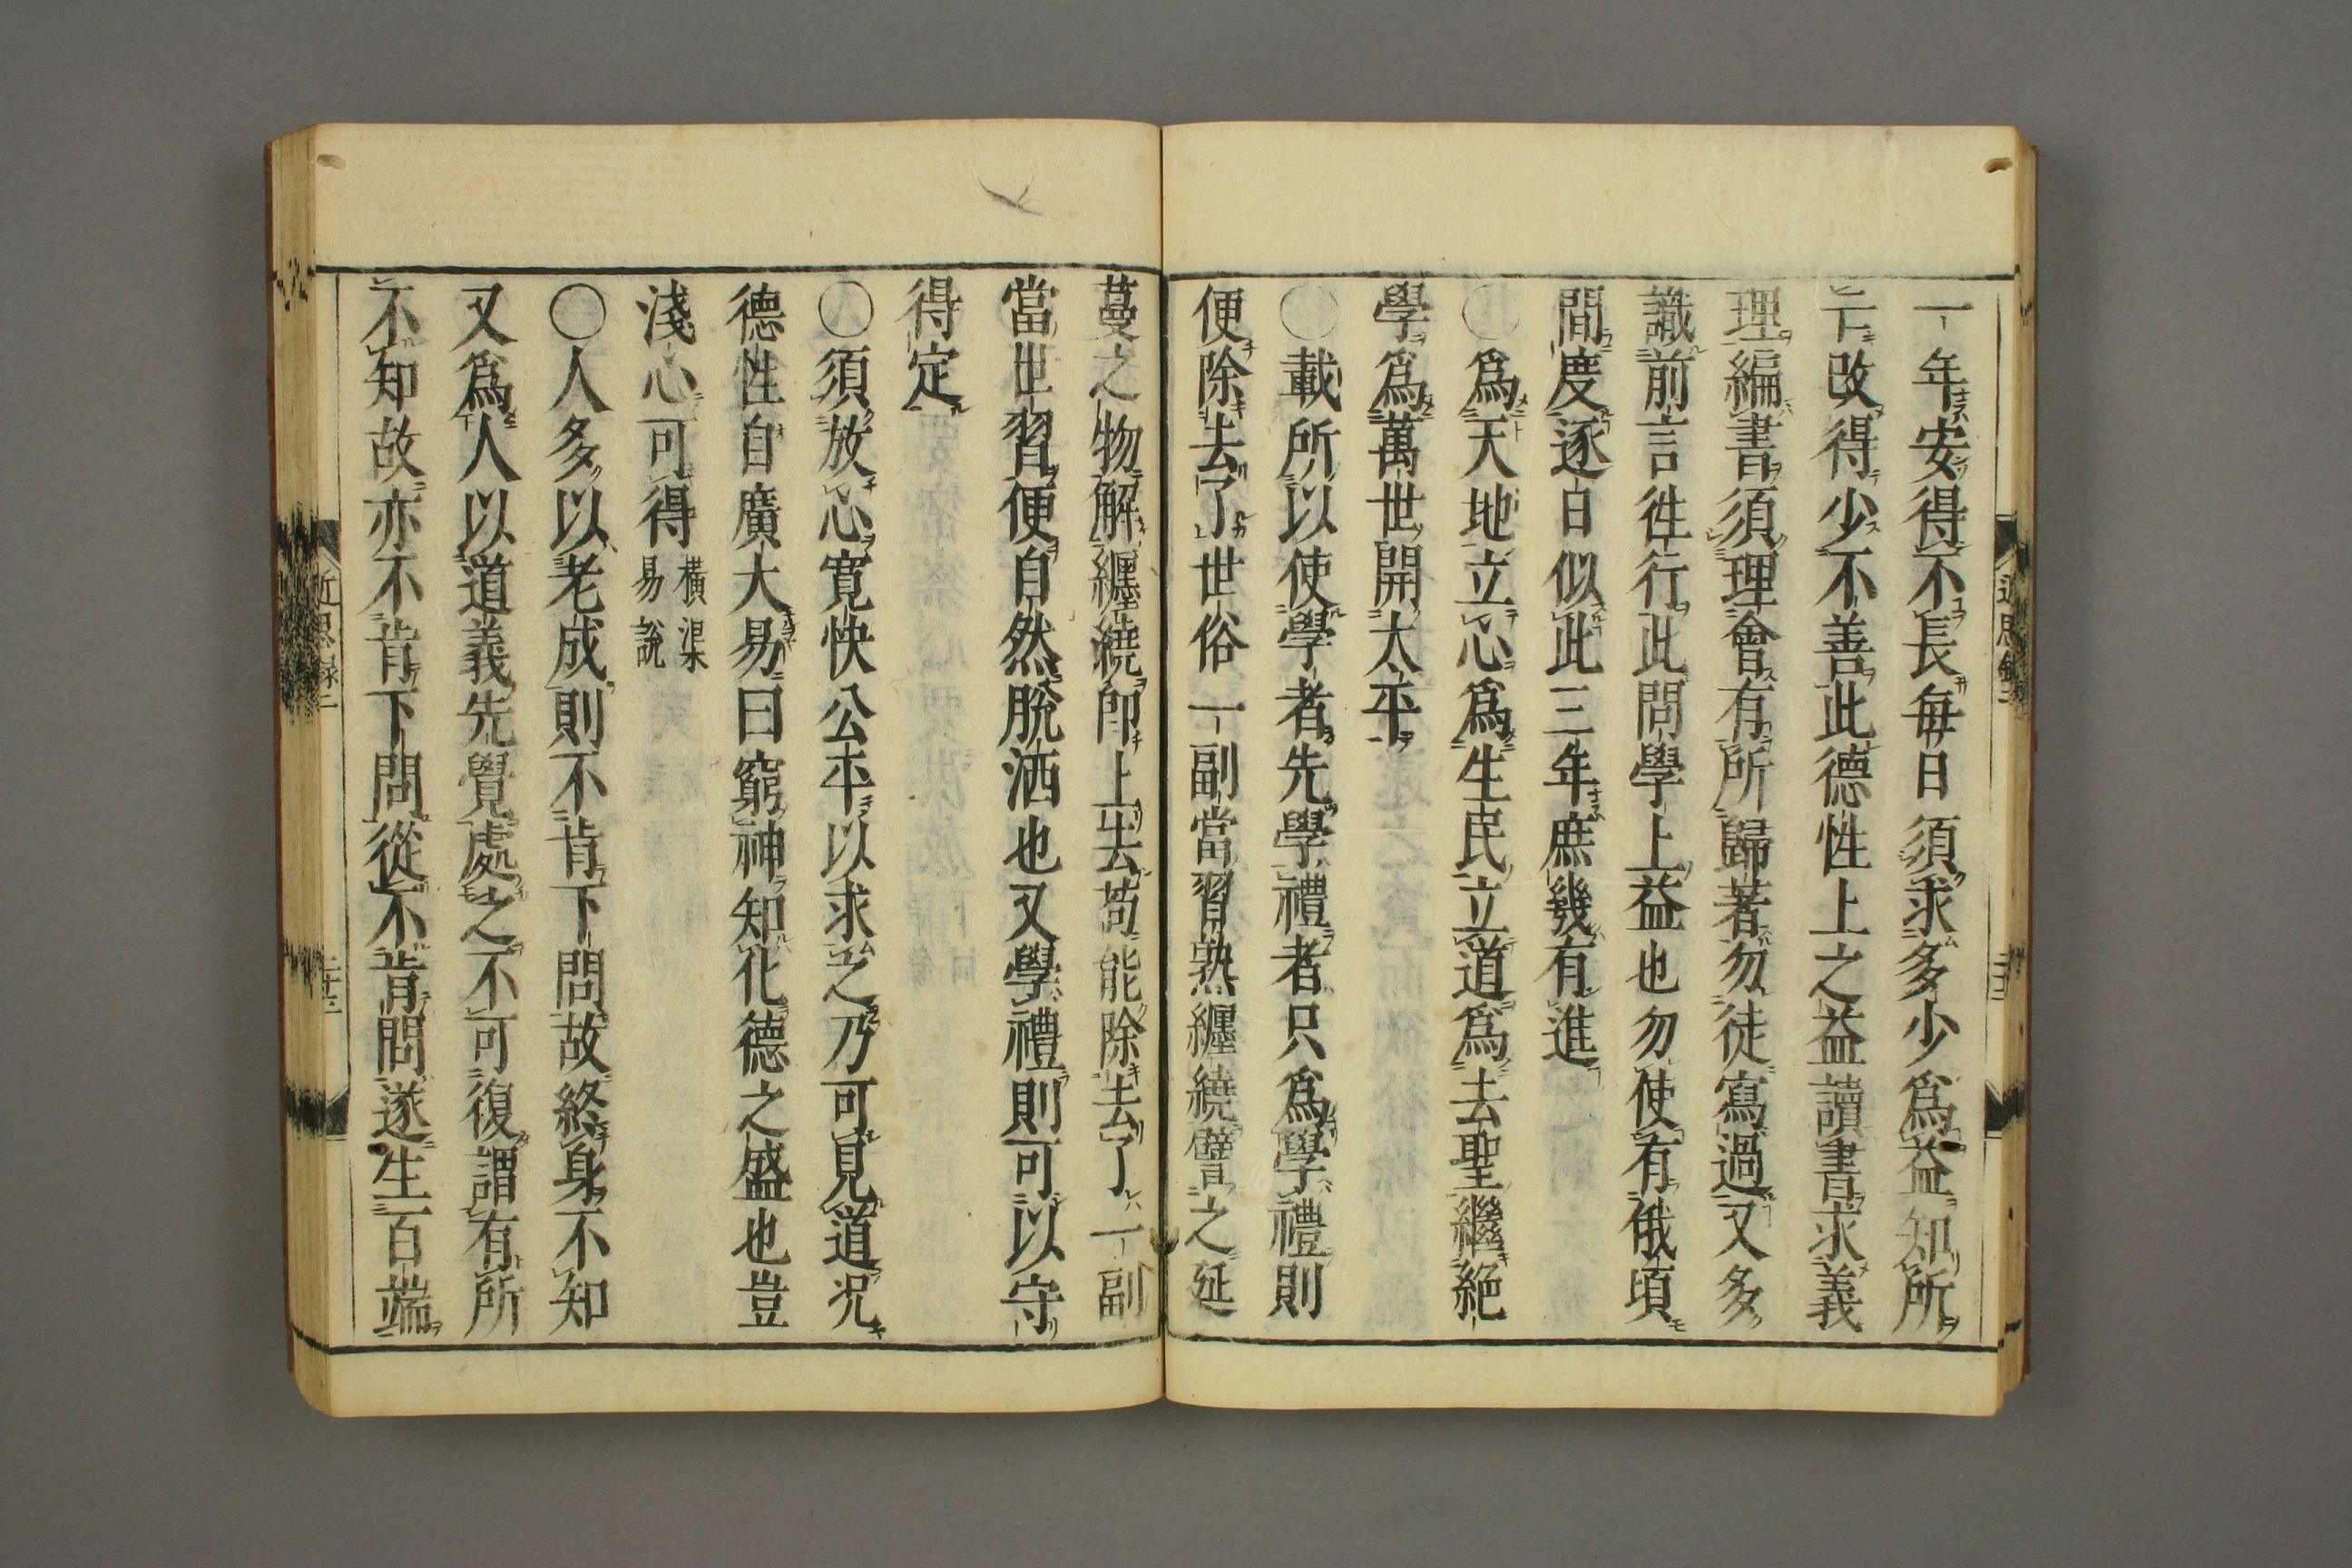 一年安得不長每日須求多少爲益知所
亡改得少不善此德性上之益讀書求義
理編書須理會有所歸著勿徒寫過又多
識前言徃行此問學上益也勿使有俄頃
間度逐日似此三年庶幾有進
〇爲天地立心爲生民立道爲去聖繼絶
學爲萬世開太平
〇載所以使學者先學禮者只爲學禮則
便除去了世俗一副當習熟纏繞譬之延
蔓之物解纏繞卽上去苟能除去了一副
當世習便自然脫洒也又學禮則可以守
得定
〇須放心寛快公平以求之乃可見道况
德性自廣大易曰窮神知化德之盛也豈
淺心可得 橫渠易說
〇人多以老成則不肯下問故終身不知
又爲人以道義先覺處之不可復謂有所
不知故亦不肯下問從不肯問遂生百端
近思録二